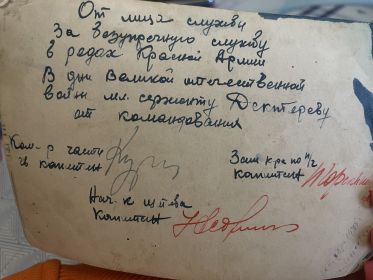 От лица службы
За безупречную службу
в рядах Красной Армии
В дни Великой отечественной
войны мл. сержанту Дектереву
от командования
Ком-р части
гв капитан
Зам к-ра по п/ч
капитан
Нач. к штаба
Капитан